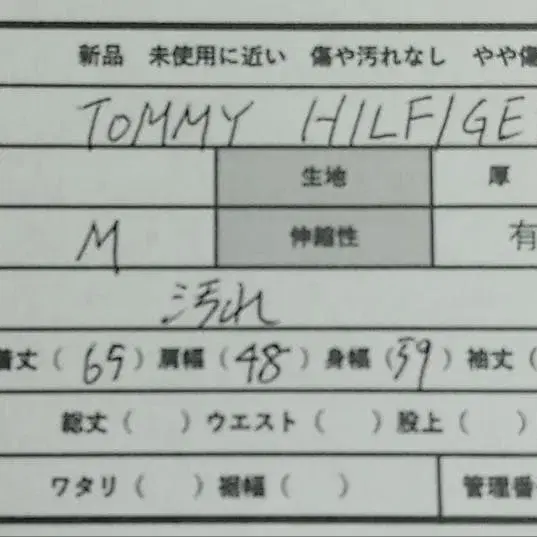 新品 未使用に近い 傷や汚れなし やや傷
TOMMY HILFIGE
生地 厚
M 伸縮性 有
汚れ
着丈 ( 65 ) 肩幅 ( 48 ) 身幅 ( 59 ) 袖丈 (
総丈 ( ) ウエスト ( ) 股上 ( )
ワタリ ( ) 裾幅 ( ) 管理番